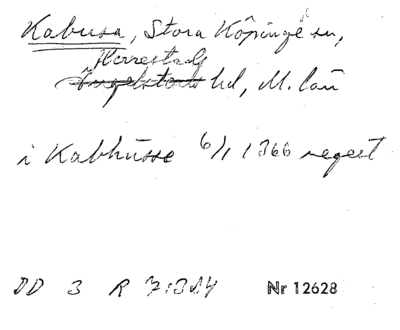 Kabusa, Stora Köpinge sn,
Herrestads
Ingelstads hd, M. län
i Kabhusse 6/1 1366 regest
DD 3 R 7:324 Nr 12628